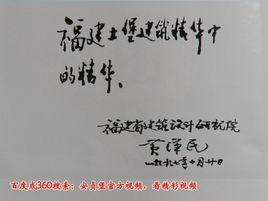 福建土堡建筑精华中
的精华、
福建省建筑设计研究院
黄汉民
一九九七年十月廿日
百度或360搜索：安贞堡官方视频，看精彩视频